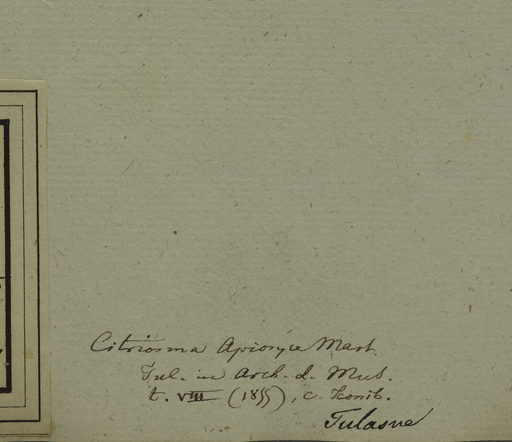 Citriosma Apiosyce Mart.
Tul. in Arch. d. Mus.
t. VIII (1855), c. Iconib.
Tulasne